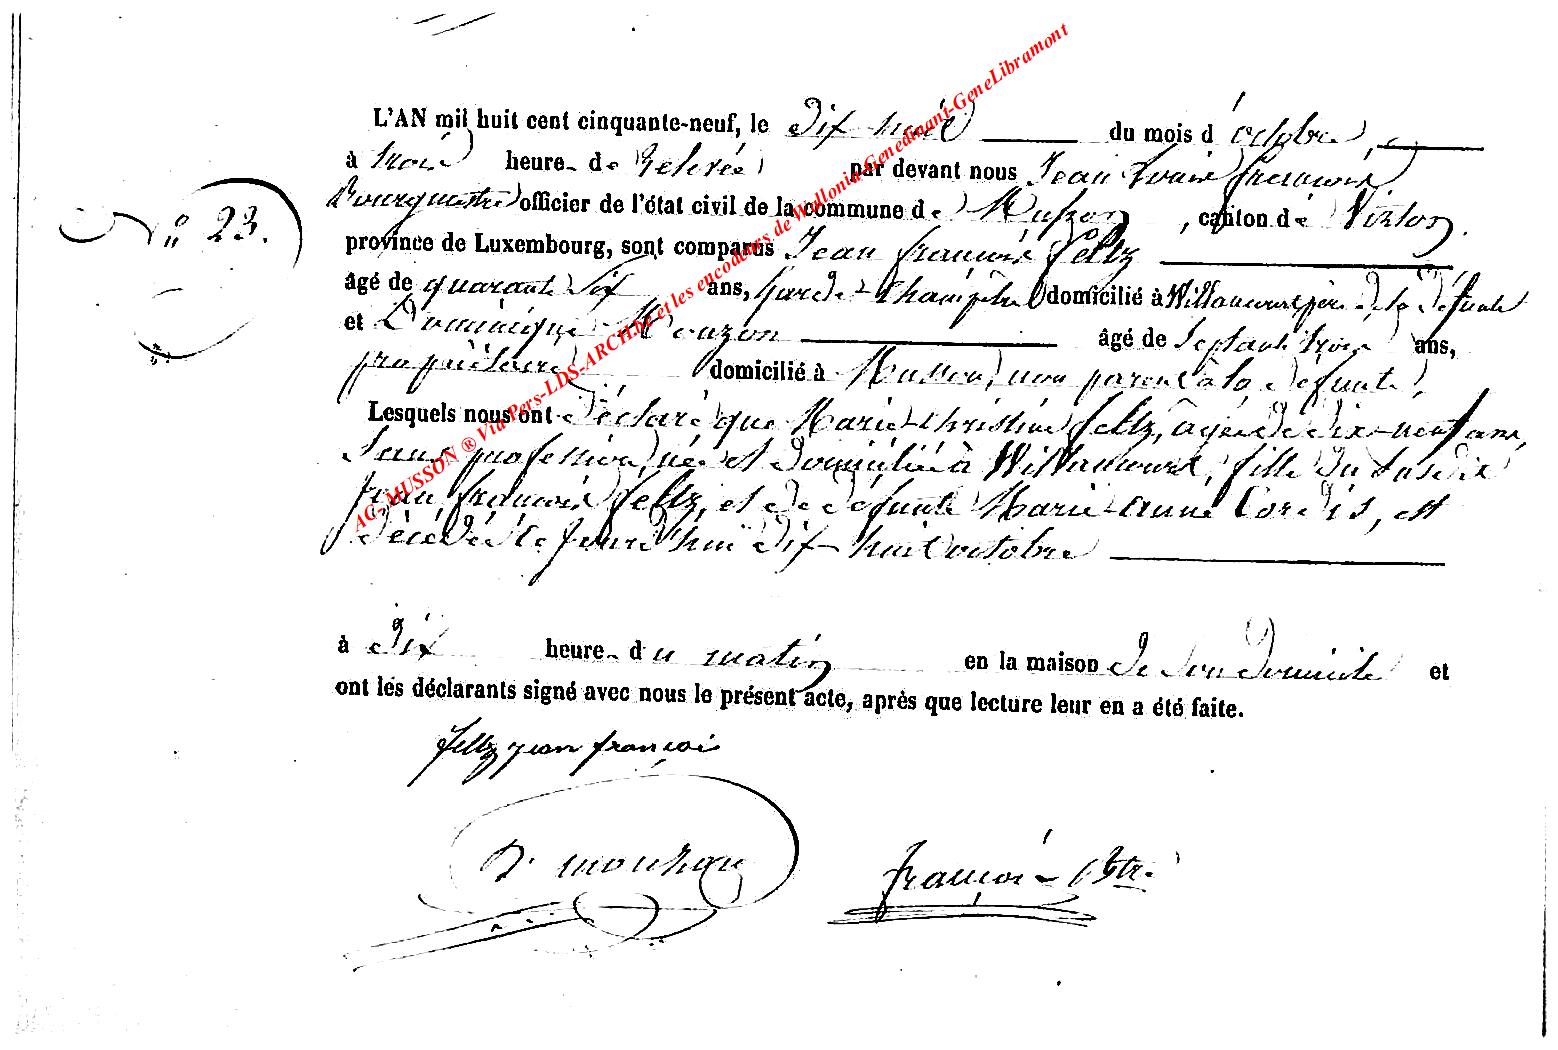 L'AN mil huit cent cinquante-neuf, le Dix huit du mois d'octobre,
à trois heure de Relevée par devant nous Jean François
Bourgmestre officier de l'état civil de la commune de Musson, canton de Virton,
N° 23.
province de Luxembourg, sont comparus Jean françois feltz
âgé de quarante six ans, garde-champêtre domicilié à Willancourt père de la défunte
et Dominique Mouzon âgé de septante trois ans,
propriétaire domicilié à Musson, non parent à la défunte,
Lesquels nous ont déclaré que Marie-christine feltz, âgée de dix-neuf ans,
sans profession, née et domiciliée à Willancourt, fille du susdit
Jean françois feltz, et de défunte Marie-anne Cordis, est
décédée le jourd'hui dix-huit octobre
à Dix heure du matin en la maison de son domicile et
ont les déclarants signé avec nous le présent acte, après que lecture leur en a été faite.
feltz jean françois
D. mouzon
françois - Bstre
AG- MUSSON ® Via Pers-LDS-ARCH.be et les encodeurs de Wallonia-Genedinant-GeneLibramont